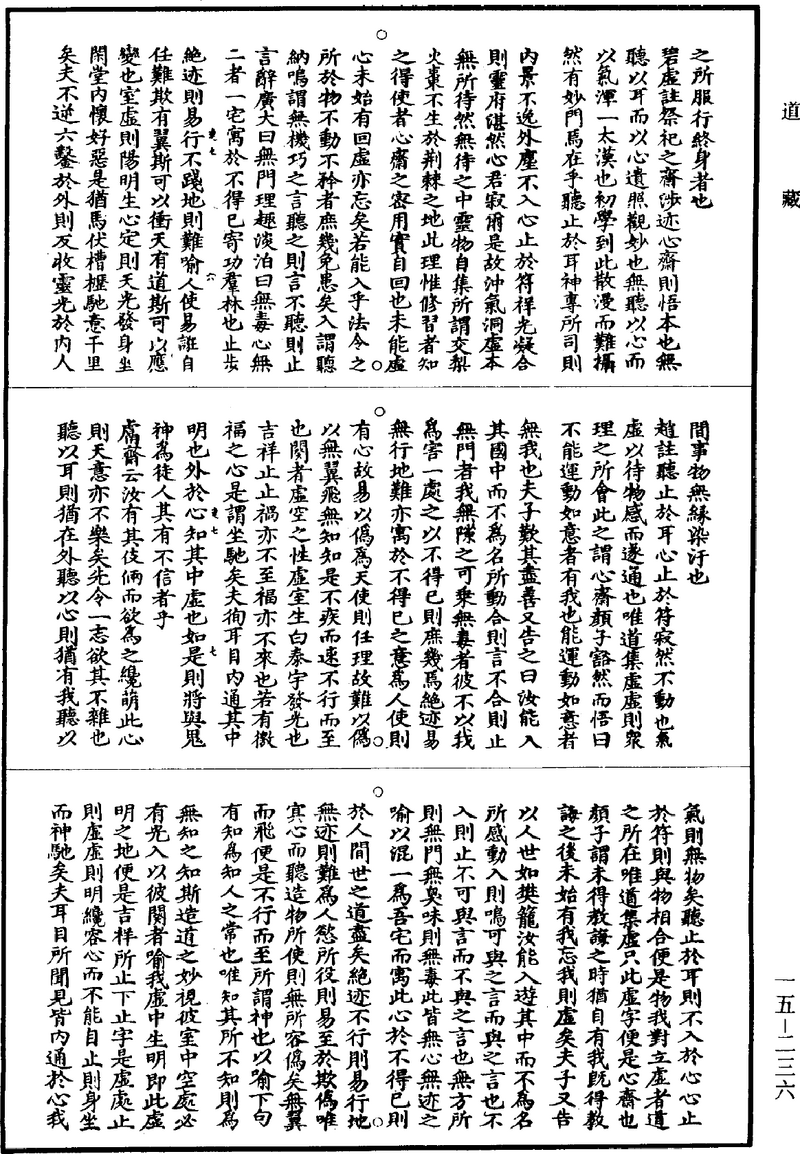 道藏
之所服行終身者也
碧虛註祭祀之齋涉迹心齋則悟本也無
聽以耳而以心遺照觀妙也無聽以心而
以氣渾一太漠也初學到此散漫而難攝
然有妙門焉在乎聽止於耳神專所司則
內景不逸外塵不入心止於符祥光凝合
則靈府湛然心君寂爾是故沖氣洞虛本
無所待然無待之中靈物自集所謂交梨
火棗不生於荆棘之地此理惟修習者知
之得使者心齋之密用實自回也未能虛
心未始有回虛亦忘矣若能入乎法令之
所於物不動不矜者庶幾免患矣入謂聽
納鳴謂無機巧之言聽之則言不聽則止
言辭廣大曰無門理趣淡泊曰無毒心無
二者一宅寓於不得已寄功羣林也止步
絕迹則易行不踐地則難喻人使易誑自
任難欺有翼斯可以衝天有道斯可以應
變也室虛則陽明生心定則天光發身坐
閑堂內懷好惡是猶馬伏槽櫪馳意千里
矣夫不逆六鑿於外則反收靈光於內人
間事物無緣染汙也
趙註聽止於耳心止於符寂然不動也氣
虛以待物感而遂通也唯道集虛虛則衆
理之所會此之謂心齋顏子豁然而悟曰
不能運動如意者有我也能運動如意者
無我也夫子歎其盡善又告之曰汝能入
其國中而不為名所動合則言不合則止
無門者我無隙之可乘無毒者彼不以我
為害一處之以不得已則庶幾焉絕迹易
無行地難亦寓於不得已之意為人使則
有心故易以偽為天使則任理故難以偽
以無翼飛無知知是不疾而速不行而至
也闋者虛空之性虛室生白泰宇發光也
吉祥止止禍亦不至福亦不來也若有徼
福之心是謂坐馳矣夫徇耳目內通其中
明也外於心知其中虛也如是則將與鬼
神為徒人其有不信者乎
鬳齋云汝有其伎倆而欲為之纔萌此心
則天意亦不樂矣先令一志欲其不雜也
聽以耳則猶在外聽以心則猶有我聽以
氣則無物矣聽止於耳則不入於心心止
於符則與物相合便是物我對立虛者道
之所在唯道集虛只此虛字便是心齋也
顏子謂未得教誨之時猶自有我既得教
誨之後未始有我忘我則虛矣夫子又告
以人世如樊籠汝能入遊其中而不為名
所感動入則鳴可與之言而與之言也不
入則止不可與言而不與之言也無方所
則無門無臭味則無毒此皆無心無迹之
喻以混一為吾宅而寓此心於不得已則
於人間世之道盡矣絕迹不行則易行地
無迹則難為人慾所役則易至於欺偽唯
冥心而聽造物所使則無所容偽矣無翼
而飛便是不行而至所謂神也以喻下句
有知為知人之常也唯知其所不知則為
無知之知斯造道之妙視彼室中空處必
有光入以彼闋者喻我虛中生明即此虛
明之地便是吉祥所止下止字是虛處止
則虛虛則明纔容心而不能自止則身坐
而神馳矣夫耳目所聞見皆內通於心我
一五—二三六